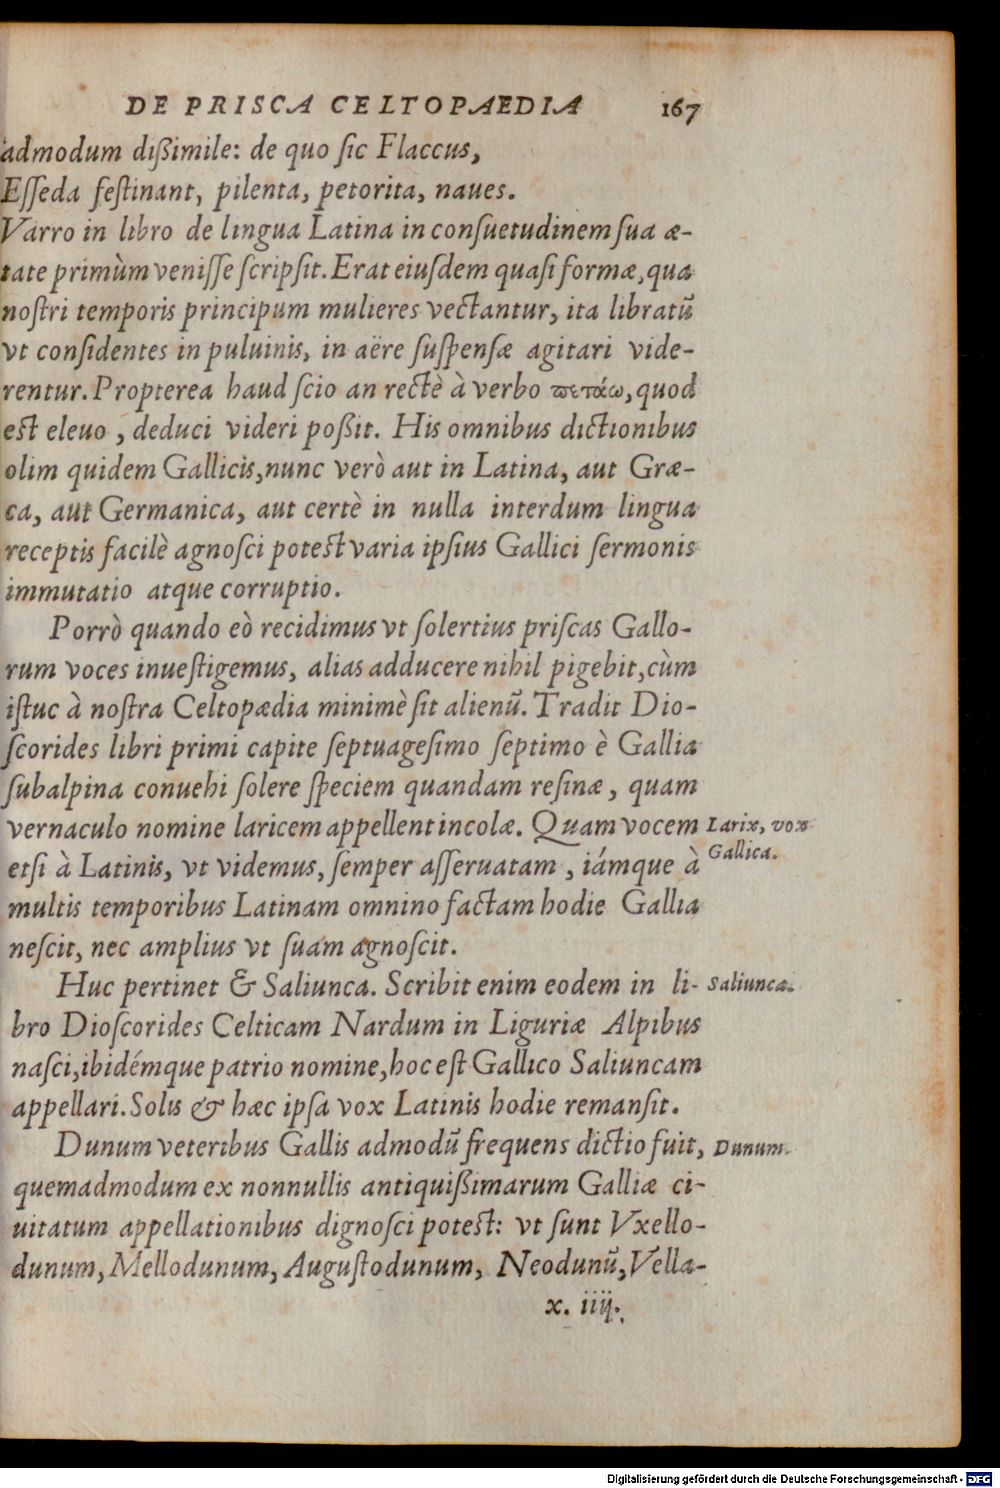 DE PRISCA CELTOPAEDIA 167
admodum dißimile: de quo ſic Flaccus,
Eſſeda feſtinant, pilenta, petorita, naues.
Varro in libro de lingua Latina in conſuetudinem ſua æ-
tate primùm veniſſe ſcripſit. Erat eiuſdem quaſi formæ, qua
noſtri temporis principum mulieres vectantur, ita libratū
vt conſidentes in puluinis, in aëre ſuſpenſæ agitari vide-
rentur. Propterea haud ſcio an rectè à verbo ϖετάω, quod
eſt eleuo, deduci videri poßit. His omnibus dictionibus
olim quidem Gallicis, nunc verò aut in Latina, aut Græ-
ca, aut Germanica, aut certè in nulla interdum lingua
receptis facilè agnoſci poteſt varia ipſius Gallici ſermonis
immutatio atque corruptio.
Porrò quando eò recidimus vt ſolertius priſcas Gallo-
rum voces inueſtigemus, alias adducere nihil pigebit, cùm
iſtuc à noſtra Celtopædia minimè ſit alienū. Tradit Dio-
ſcorides libri primi capite ſeptuageſimo ſeptimo è Gallia
ſubalpina conuehi ſolere ſpeciem quandam reſinæ, quam
vernaculo nomine laricem appellent incolæ. Quam vocem
Larix, vox
Gallica.
etſi à Latinis, vt videmus, ſemper aſſeruatam, iámque à
multis temporibus Latinam omnino factam hodie Gallia
neſcit, nec amplius vt ſuam agnoſcit.
Huc pertinet & Saliunca. Scribit enim eodem in li-
Saliunca.
bro Dioſcorides Celticam Nardum in Liguriæ Alpibus
naſci, ibidémque patrio nomine, hoc eſt Gallico Saliuncam
appellari. Solis & hæc ipſa vox Latinis hodie remanſit.
Dunum veteribus Gallis admodū frequens dictio fuit,
Dunum.
quemadmodum ex nonnullis antiquißimarum Galliæ ci-
uitatum appellationibus dignoſci poteſt: vt ſunt Vxello-
dunum, Mellodunum, Auguſtodunum, Neodunū, Vella-
x. iiij.
Digitalisierung gefördert durch die Deutsche Forschungsgemeinschaft - DFG